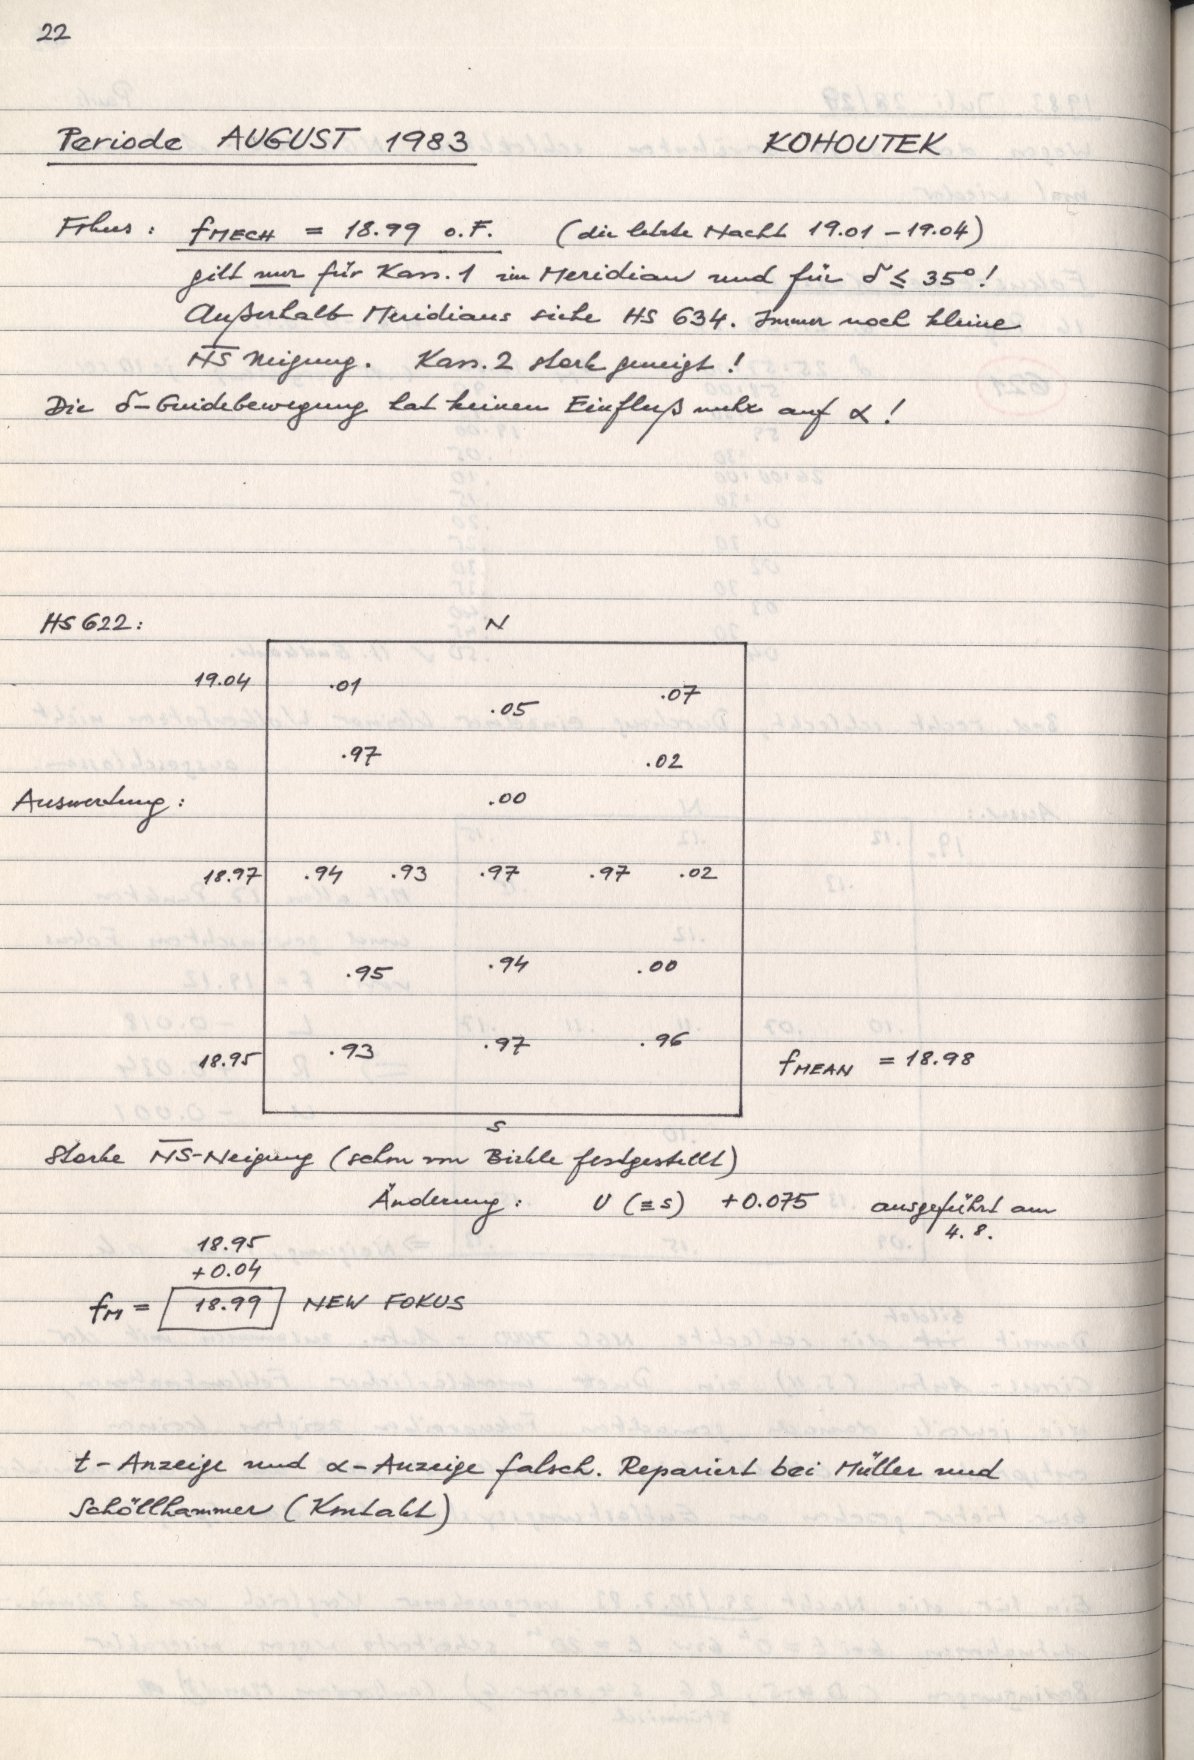 22
Periode AUGUST 1983 KOHOUTEK
Fokus: fMECH = 18.99 o.F. (die letzte Nacht 19.01 – 19.04)
gilt nur für Kass. 1 im Meridian und für δ ≤ 35°!
Außerhalb Meridians siehe HS 634. Immer noch kleine
NS Neigung. Kass. 2 stark geneigt!
Die δ-Guidebewegung hat keinen Einfluß mehr auf α!
HS 622: N
19.04 .01 .05 .07
.97 .02
Auswertung: .00
18.97 .94 .93 .97 .97 .02
.95 .94 .00
18.95 .93 .97 .96 fMEAN = 18.98
S
Starke NS-Neigung (schon von Birkle festgestellt)
Änderung: U (≡S) +0.075 ausgeführt am
4.8.
18.95
+0.04
fM = 18.99 NEW FOKUS
t-Anzeige und α-Anzeige falsch. Repariert bei Müller und
Schöllhammer (Kontakt)